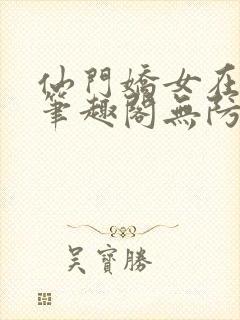 仙門嬌女在
筆趣閣無防
吳寶勝